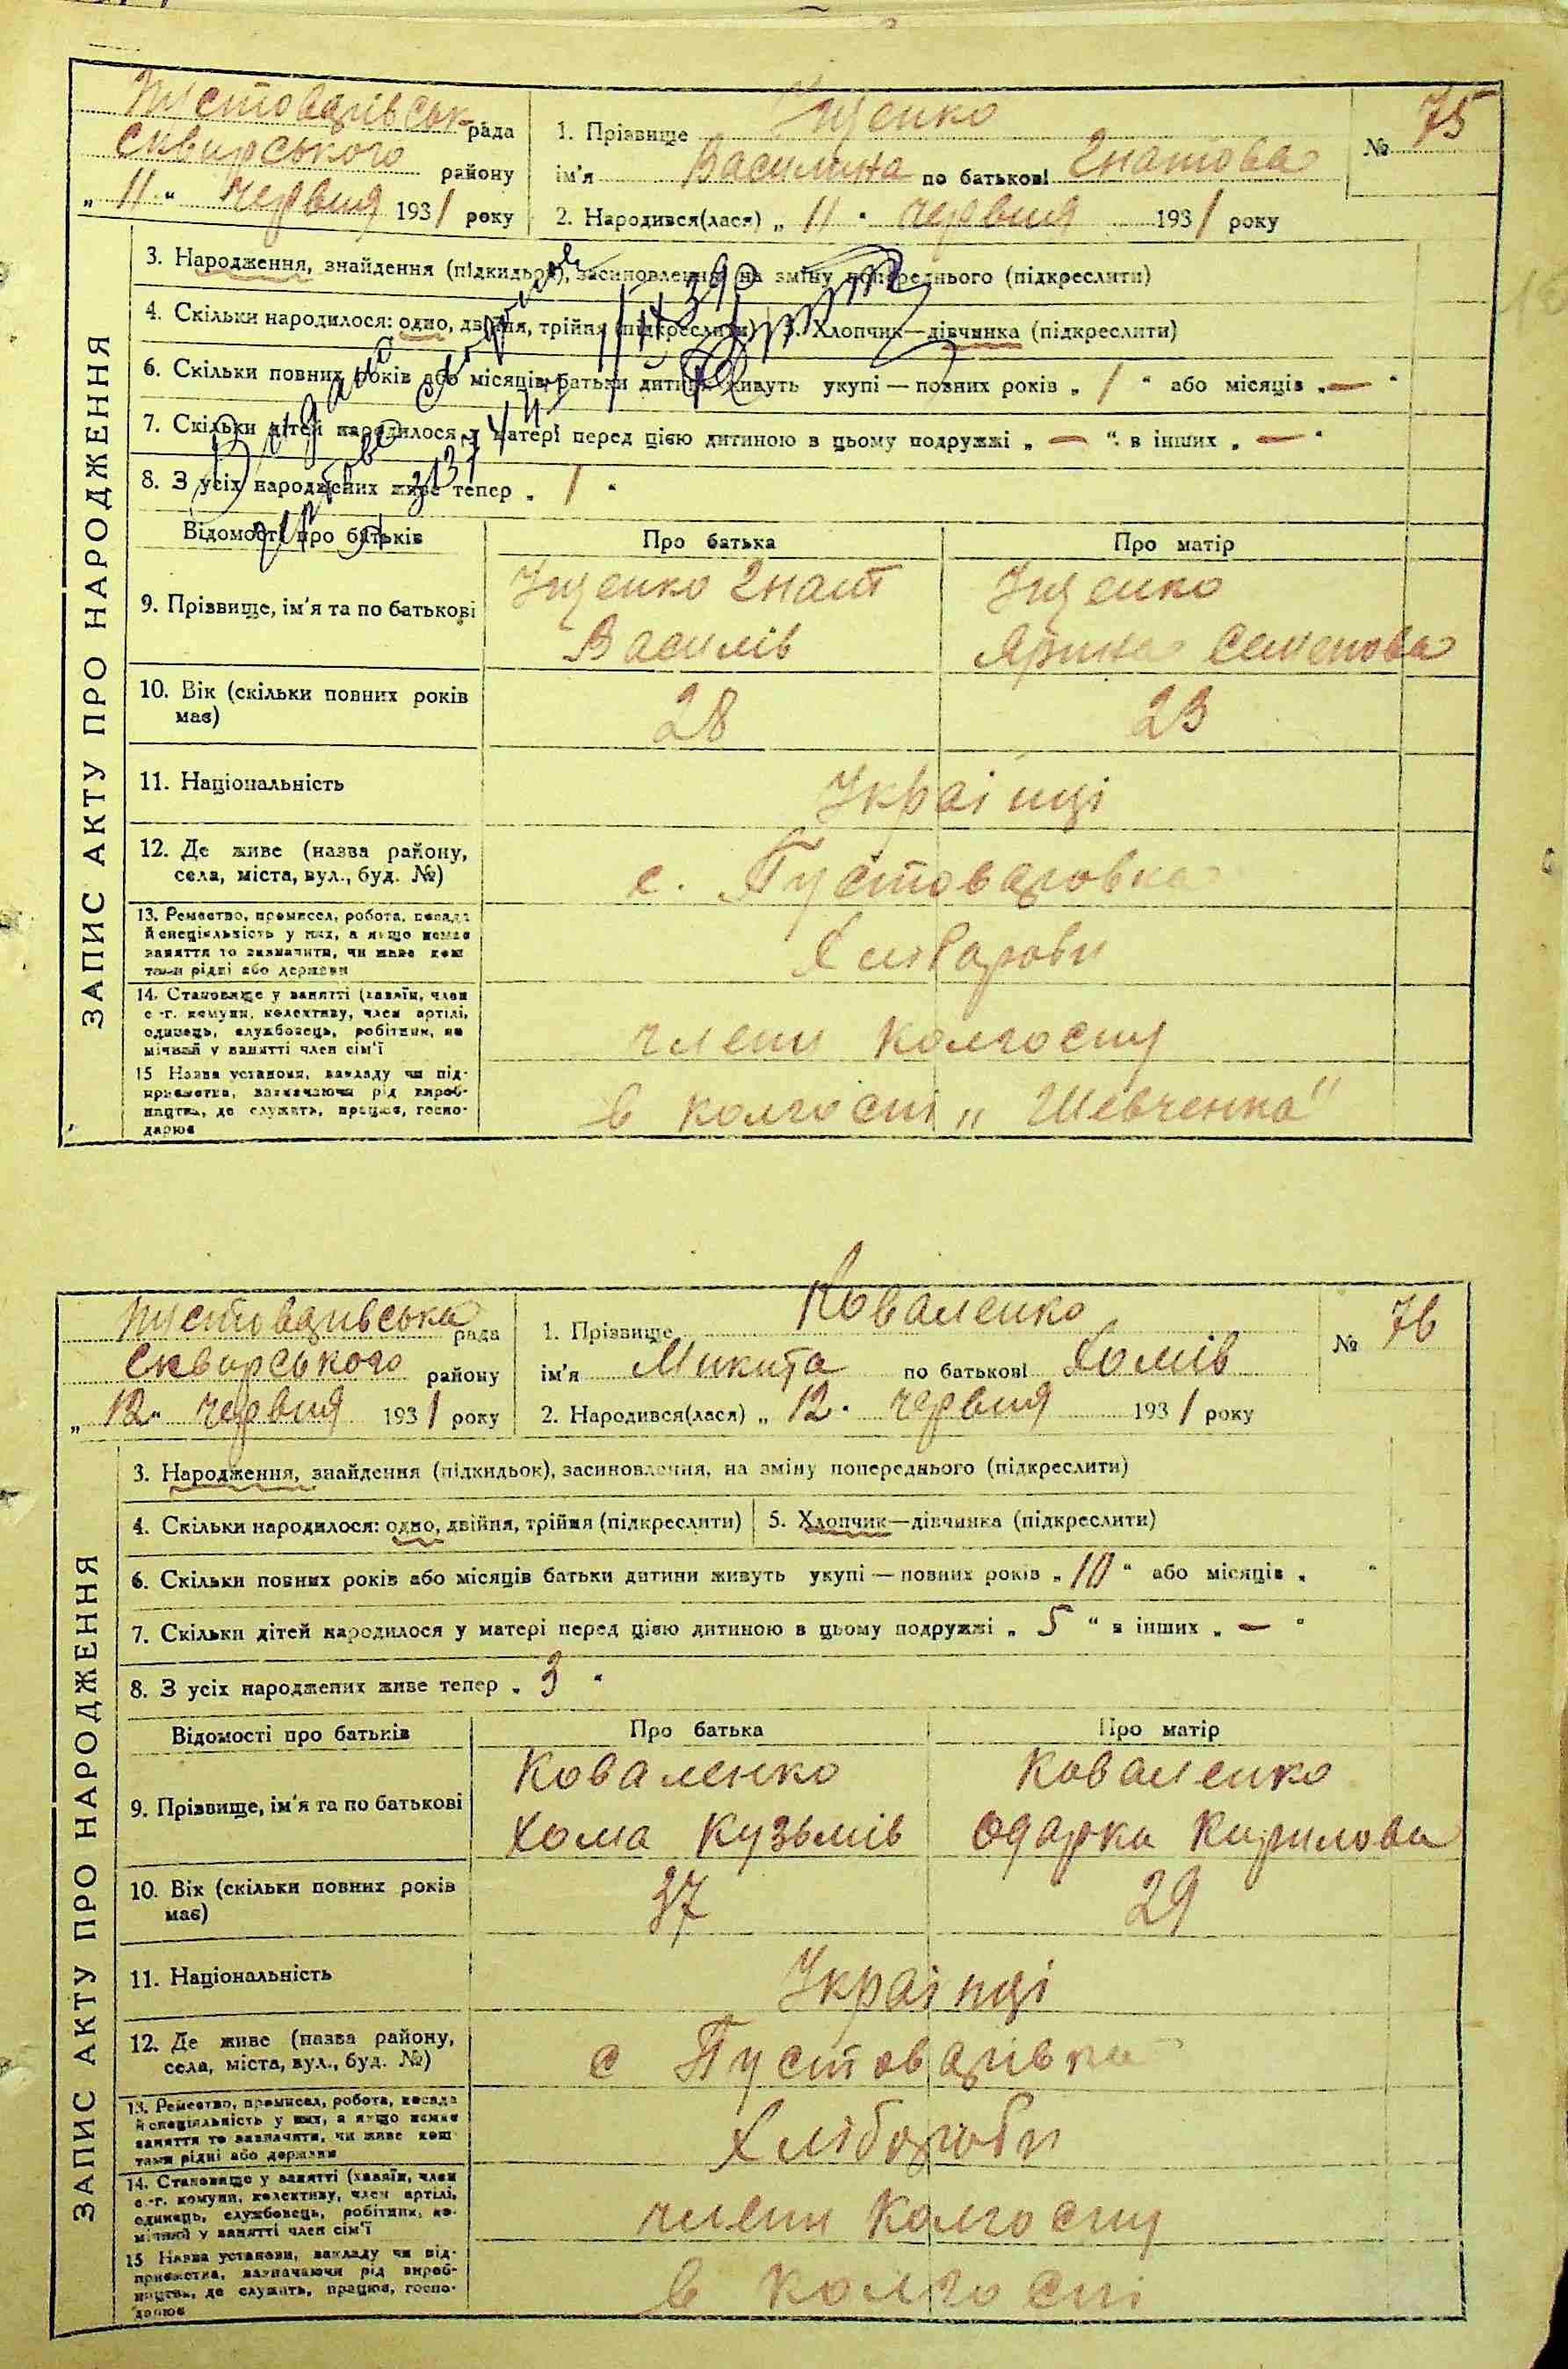 ЗАПИС АКТУ ПРО НАРОДЖЕННЯ
Пустоварівськ рада
Сквирського району
„ 11 “ червня 1931 року
1. Прізвище Іщенко
ім'я Василина по батькові Гнатова
№ 75
2. Народився(лася) „ 11 “ червня 1931 року
3. Народження, знайдення (підкидьок), засиновлення, на зміну попереднього (підкреслити)
4. Скільки народилося: одно, двійня, трійня (підкреслити) 5. Хлопчик—дівчинка (підкреслити)
6. Скільки повних років або місяців батьки дитини живуть укупі — повних років „ 1 “ або місяців „ — “
7. Скільки дітей народилося у матері перед цією дитиною в цьому подружжі „ — “ в інших „ — “
8. З усіх народжених живе тепер „ 1 “
Відомості про батьків Про батька Про матір
9. Прізвище, ім'я та по батькові
Іщенко Гнат
Василів
Іщенко
Ярина Семенова
10. Вік (скільки повних років має)
28 23
11. Національність
Українці
12. Де живе (назва району,
села, міста, вул., буд. №)
с. Пустоваровка
13. Ремество, промисел, робота, посада
й спеціяльність у них, а якщо немає
заняття то зазначити, чи живе кош
тами рідні або держави
Хлібороби
14. Становище у занятті (хазяїн, член
с.-г. комуни, колективу, член артілі,
одинець, службовець, робітник, по
мічний у занятті член сім'ї
члени колгоспу
15 Назва установи, закладу чи під-
приємства, зазначаючи рід вироб-
ництва, де служить, працює, госпо-
дарює
в колгоспі „Шевченка“
ЗАПИС АКТУ ПРО НАРОДЖЕННЯ
Пустоварівська рада
Сквирського району
„ 12 “ червня 1931 року
1. Прізвище Коваленко
ім'я Микита по батькові Хомів
№ 76
2. Народився(лася) „ 12 “ червня 1931 року
3. Народження, знайдення (підкидьок), засиновлення, на зміну попереднього (підкреслити)
4. Скільки народилося: одно, двійня, трійня (підкреслити) 5. Хлопчик—дівчинка (підкреслити)
6. Скільки повних років або місяців батьки дитини живуть укупі — повних років „ 10 “ або місяців „ “
7. Скільки дітей народилося у матері перед цією дитиною в цьому подружжі „ 5 “ в інших „ — “
8. З усіх народжених живе тепер „ 3 “
Відомості про батьків Про батька Про матір
9. Прізвище, ім'я та по батькові
Коваленко
Хома Кузьмів
Коваленко
Одарка Кирилова
10. Вік (скільки повних років має)
37 29
11. Національність
Українці
12. Де живе (назва району,
села, міста, вул., буд. №)
с Пустоварівка
13. Ремество, промисел, робота, посада
й спеціяльність у них, а якщо немає
заняття то зазначити, чи живе кош
тами рідні або держави
Хлібороби
14. Становище у занятті (хазяїн, член
с.-г. комуни, колективу, член артілі,
одинець, службовець, робітник, по-
мічний у занятті член сім'ї
члени колгоспу
15 Назва установи, закладу чи під-
приємства, зазначаючи рід вироб-
ництва, де служить, працює, госпо-
дарює
в колгоспі